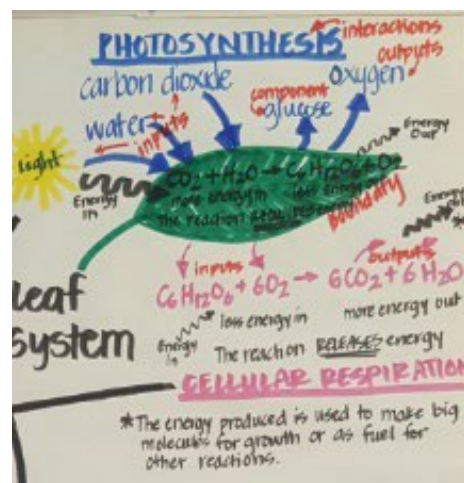 PHOTOSYNTHESIS
interactions
outputs
carbon dioxide
component
glucose
Oxygen
water
inputs
Light
Energy
In
Energy
Out
CO2 + H2O → C6H12O6 + O2
more energy in
less energy out
The reaction
boundary
Energy
leaf
system
inputs
outputs
C6H12O6 + 6O2 → 6CO2 + 6H2O
Energy
In
less energy in
more energy out
The reaction RELEASES energy
CELLULAR RESPIRATION
*The energy produced is used to make big
molecules for growth or as fuel for
other reactions.